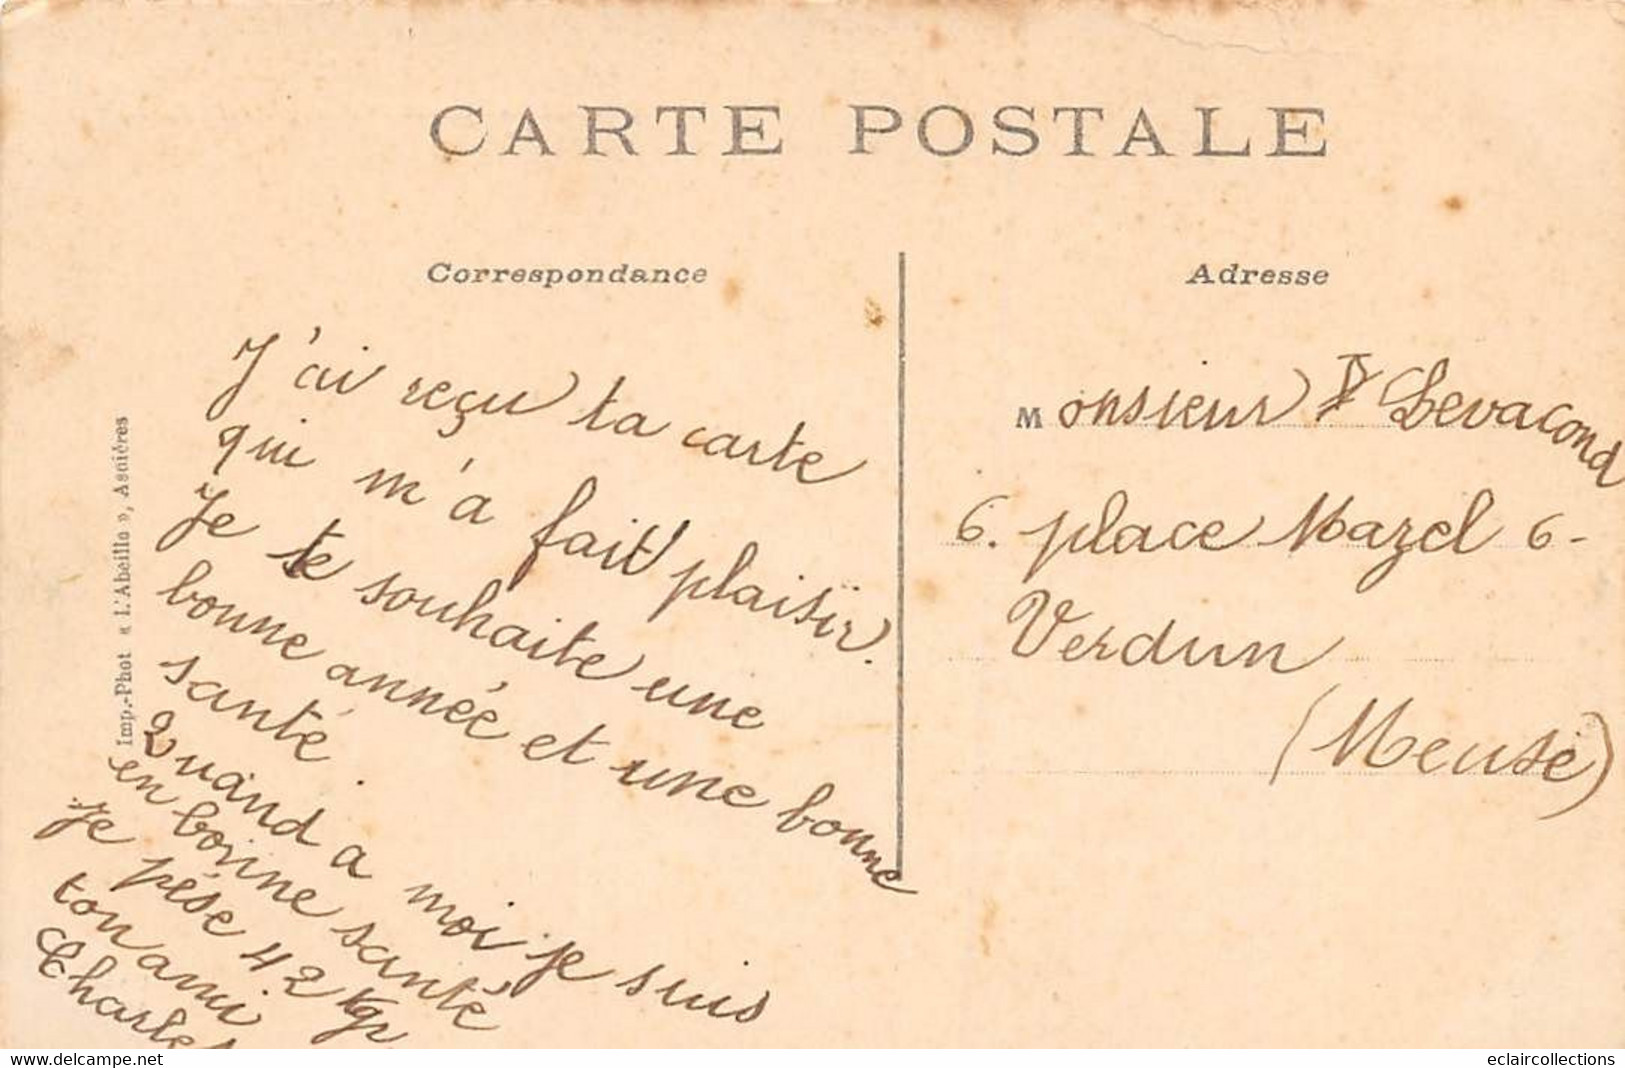 CARTE POSTALE
Correspondance
J'ai reçu ta carte
qui m'a fait plaisir.
Je te souhaite une
bonne année et une bonne
santé.
Quand a moi je suis
en bonne santé
Je pèse 42 kgr
ton ami
Charles
Adresse
Monsieur Levacond
6. place Mazel 6-
Verdun
(Meuse)
Imp.-Phot « L'Abeille », Asnières
www.delcampe.net
eclaircollections